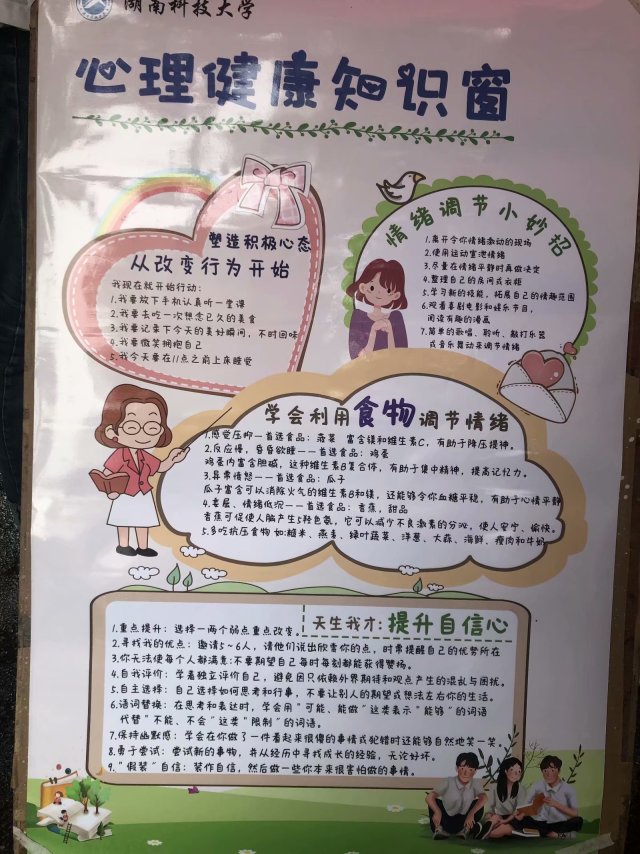 湖南科技大学
心理健康知识窗
塑造积极心态
从改变行为开始
我现在就开始行动：
1.我要放下手机认真听一堂课
2.我要去吃一次想念已久的美食
3.我要记录下今天的美好瞬间，不时回味
4.我要微笑拥抱自己
5.我今天要在11点之前上床睡觉
情绪调节小妙招
1.离开令你情绪激动的现场
2.使用运动宣泄情绪
3.尽量在情绪平静时再做决定
4.整理自己的房间或衣柜
5.学习新的技能，拓展自己的情趣范围
6.观看喜剧电影和娱乐节目，
阅读有趣的漫画
7.简单的歌唱、聆听、敲打乐器
或音乐舞动来调节情绪
学会利用食物调节情绪
1.感觉压抑——首选食品：菠菜 富含镁和维生素C，有助于降压提神。
2.反应慢，昏昏欲睡——首选食品：鸡蛋
鸡蛋内富含胆碱，这种维生素B复合体，有助于集中精神，提高记忆力。
3.异常愤怒——首选食品：瓜子
瓜子富含可以消除火气的维生素B和镁，还能够令你血糖平稳，有助于心情平静
4.委屈、情绪低沉——首选食品：香蕉，甜品
香蕉可促使人脑产生5羟色氨，它可以减少不良激素的分泌，使人安宁、愉快。
5.多吃抗压食物 如:糙米、燕麦、绿叶蔬菜、洋葱、大蒜、海鲜、瘦肉和牛奶
天生我才：提升自信心
1.重点提升：选择一两个弱点重点改变。
2.寻找我的优点：邀请5～6人，请他们说出欣赏你的点，时常提醒自己的优势所在
3.你无法使每个人都满意:不要期望自己每时每刻都能获得赞扬。
4.自我评价：学着独立评价自己，避免因只依赖外界期待和观点产生的混乱与困扰。
5.自主选择：自己选择如何思考和行事，不要让别人的期望或想法左右你的生活。
6.语词替换：在思考和表达时，学会用“可能、能做”这类表示“能够”的词语
代替“不能、不会”这类“限制”的词语。
7.保持幽默感：学会在你做了一件看起来很傻的事情或犯错时还能够自然地笑一笑。
8.勇于尝试：尝试新的事物，并从经历中寻找成长的经验，无论好坏。
9.“假装”自信：装作自信，然后做一些你本来很害怕做的事情。